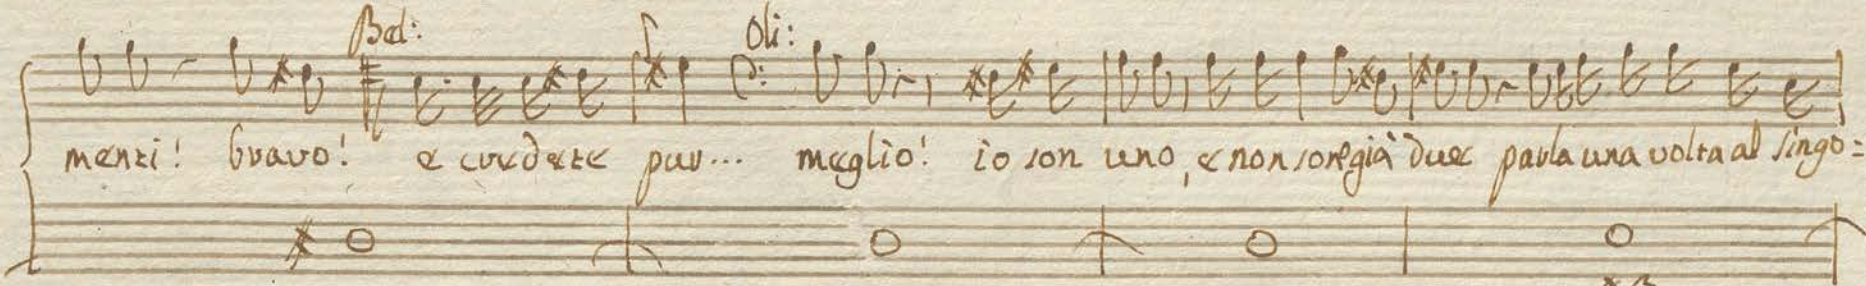 Bel: Oli:
menti! bravo! e credete pur... meglio! io son uno, e non son già due parla una volta al singo=